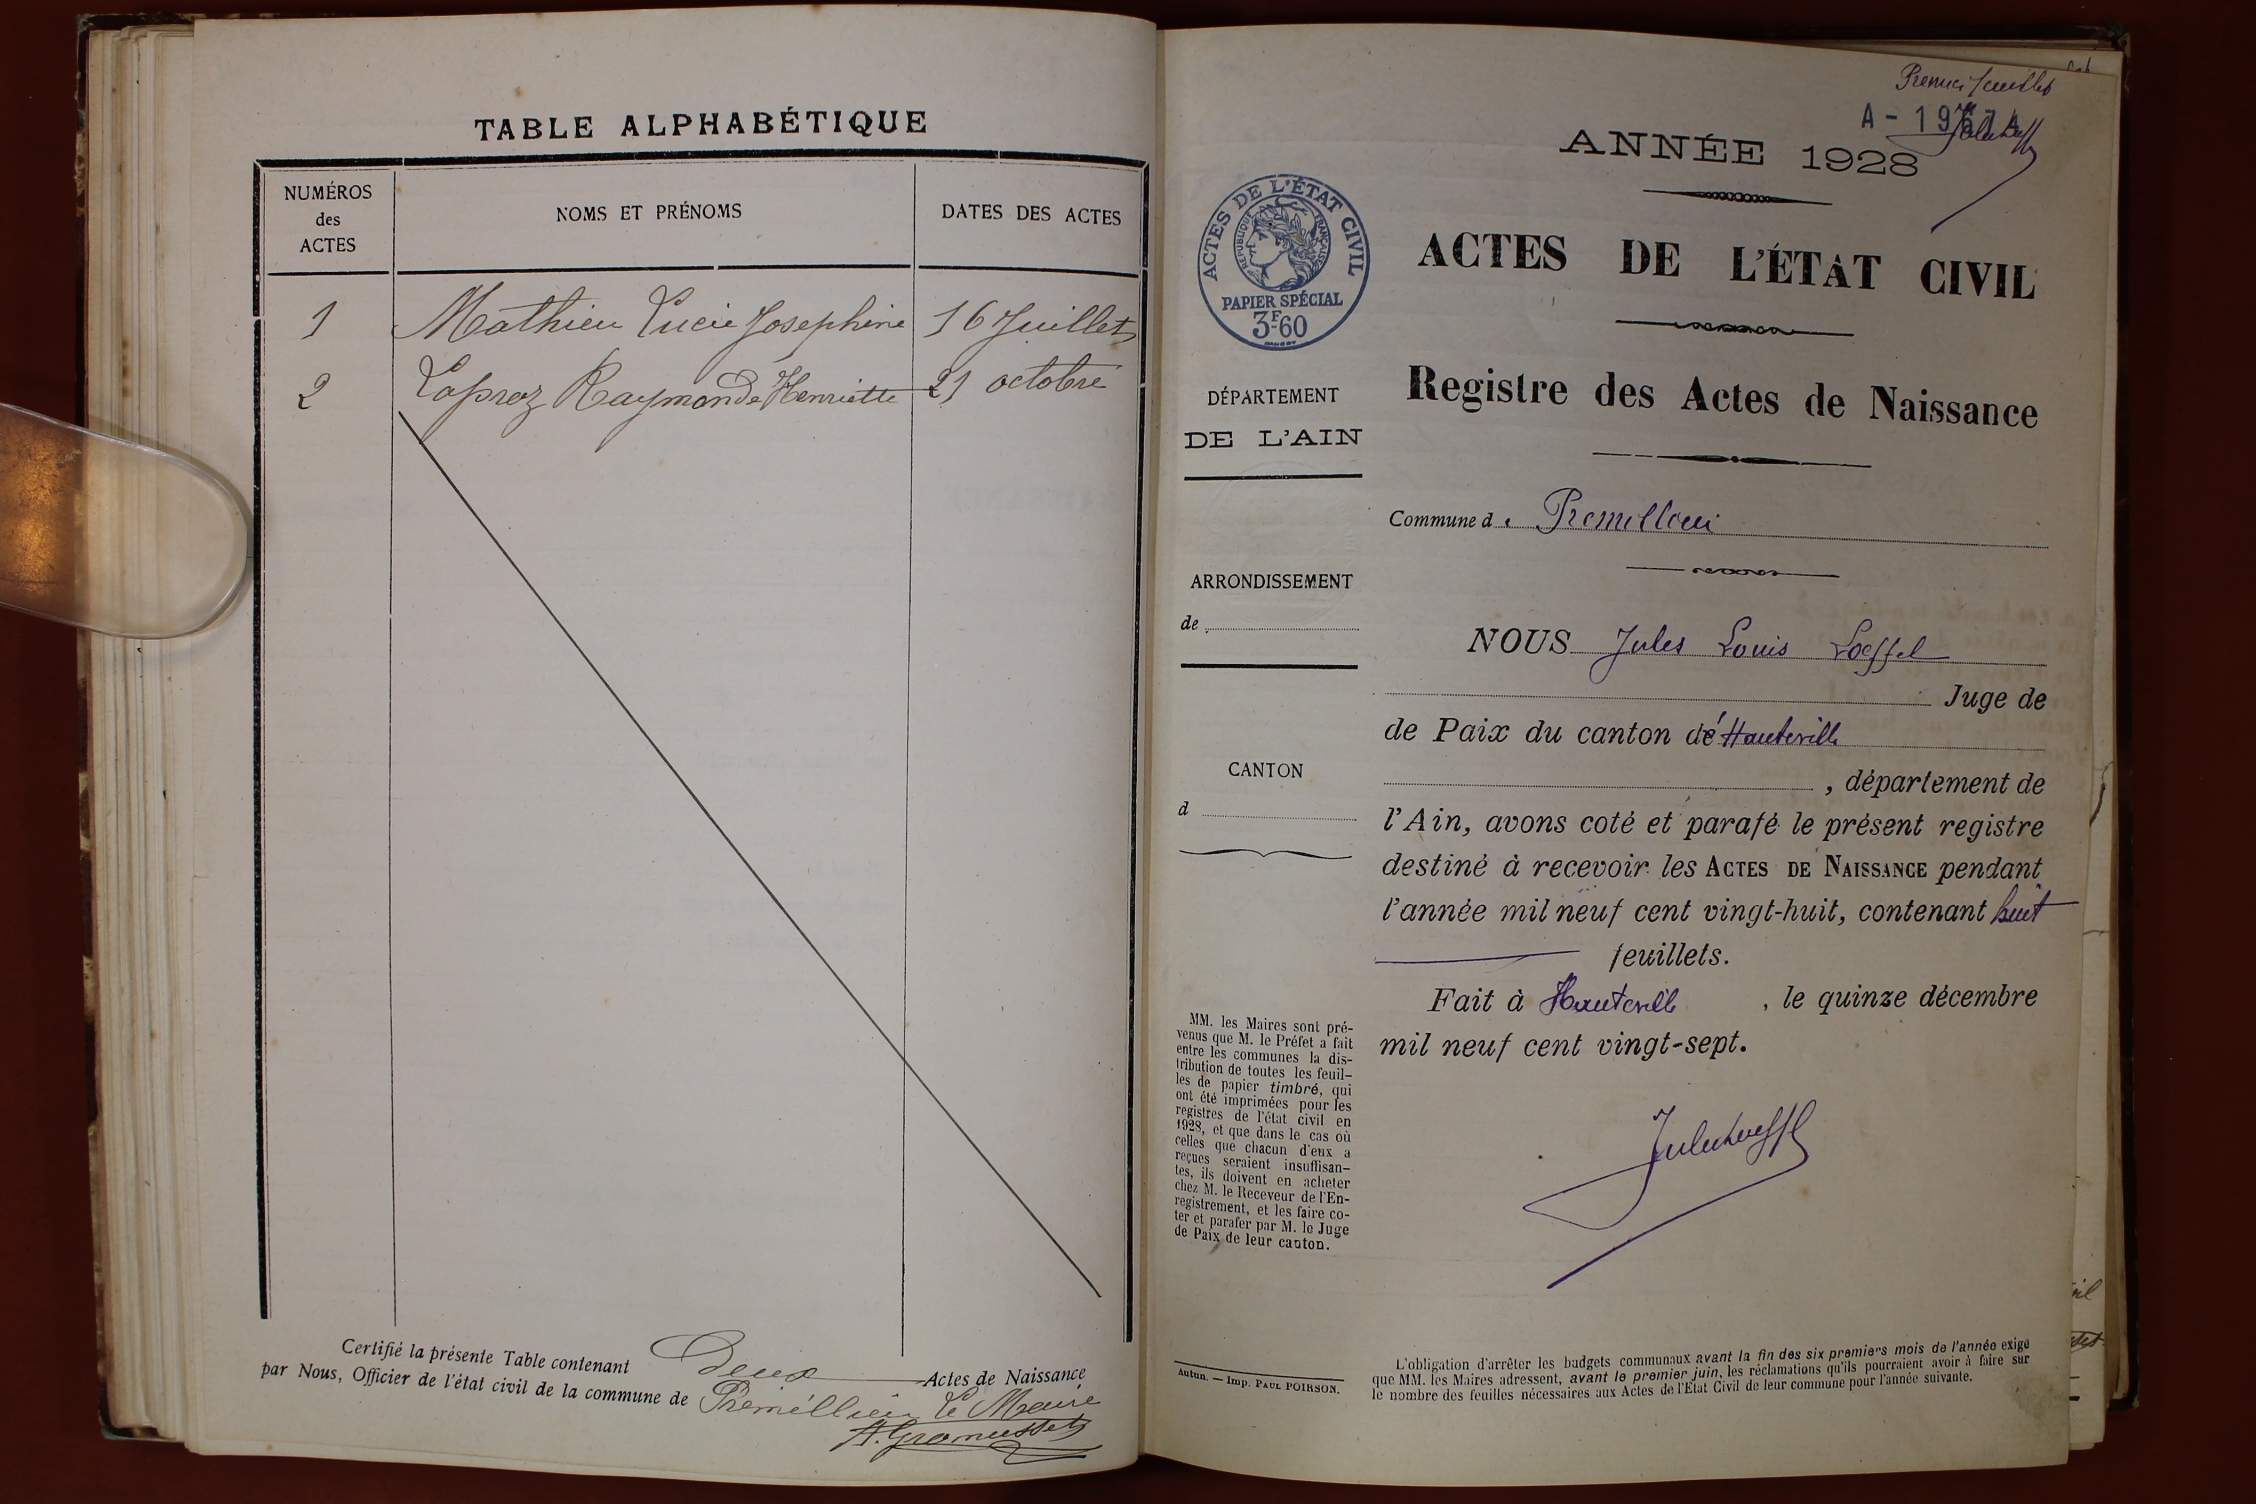 TABLE ALPHABÉTIQUE
NUMÉROS
des
ACTES
NOMS ET PRÉNOMS
DATES DES ACTES
1 Mathieu Lucie Josephine 16 Juillet
2 Laproz Raymonde Henriette 21 octobre
Certifié la présente Table contenant Deux Actes de Naissance
par Nous, Officier de l'état civil de la commune de Prémillieu Le Maire
A. Gromusset
Premier feuillet
A - 19
ANNÉE 1928
ACTES DE L'ÉTAT CIVIL
RÉPUBLIQUE FRANÇAISE
PAPIER SPÉCIAL
3F.60
ACTES DE L'ÉTAT CIVIL
DÉPARTEMENT
DE L'AIN
ARRONDISSEMENT
de
CANTON
d
MM. les Maires sont pré-
venus que M. le Préfet a fait
entre les communes la dis-
tribution de toutes les feuil-
les de papier timbré, qui
ont été imprimées pour les
registres de l'état civil en
1928, et que dans le cas où
celles que chacun d'eux a
reçues seraient insuffisan-
tes, ils doivent en acheter
chez M. le Receveur de l'En-
registrement, et les faire co-
ter et parafer par M. le Juge
de Paix de leur canton.
Autun. — Imp. PAUL POIRSON.
Registre des Actes de Naissance
Commune de Premillieu
NOUS Jules Louis Loeffel
Juge de
de Paix du canton d'Hauteville
, département de
l'Ain, avons coté et parafé le présent registre
destiné à recevoir les ACTES DE NAISSANCE pendant
l'année mil neuf cent vingt-huit, contenant huit
feuillets.
Fait à Hauteville, le quinze décembre
mil neuf cent vingt-sept.
Jules Loeffel
L'obligation d'arrêter les budgets communaux avant la fin des six premiers mois de l'année exige
que MM. les Maires adressent, avant le premier juin, les réclamations qu'ils pourraient avoir à faire sur
le nombre des feuilles nécessaires aux Actes de l'État Civil de leur commune pour l'année suivante.